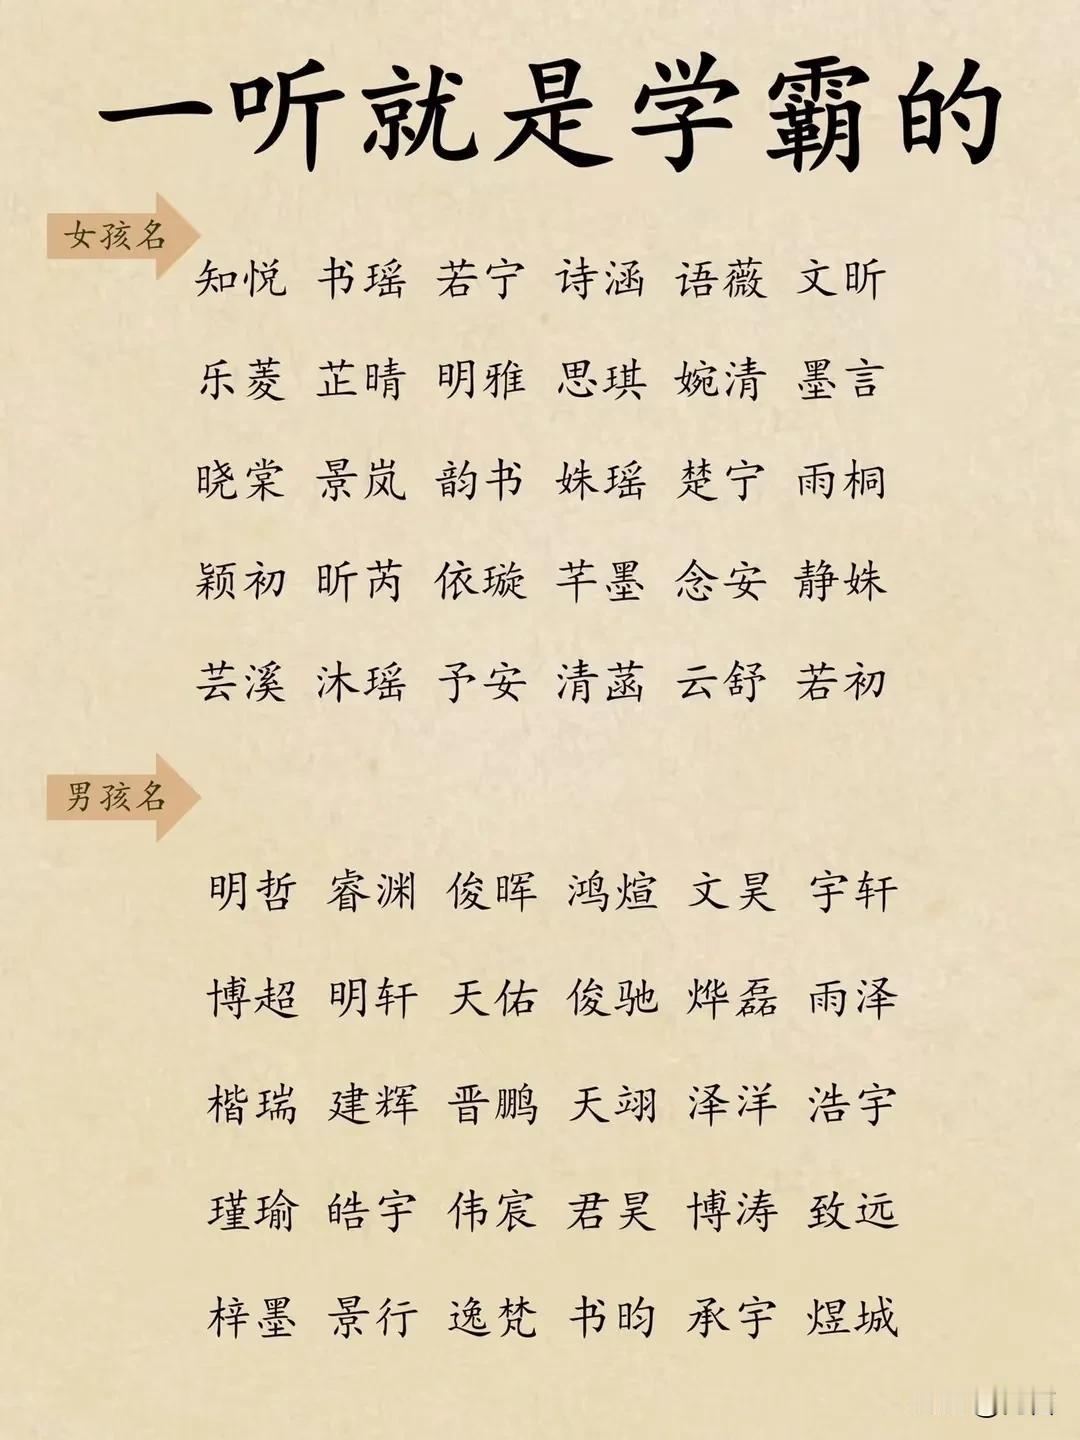 一听就是学霸的
女孩名
知悦 书瑶 若宁 诗涵 语薇 文昕
乐菱 芷晴 明雅 思琪 婉清 墨言
晓棠 景岚 韵书 姝瑶 楚宁 雨桐
颖初 昕芮 依璇 芊墨 念安 静姝
芸溪 沐瑶 予安 清菡 云舒 若初
男孩名
明哲 睿渊 俊晖 鸿煊 文昊 宇轩
博超 明轩 天佑 俊驰 烨磊 雨泽
楷瑞 建辉 晋鹏 天翊 泽洋 浩宇
瑾瑜 皓宇 伟宸 君昊 博涛 致远
梓墨 景行 逸梵 书昀 承宇 煜城